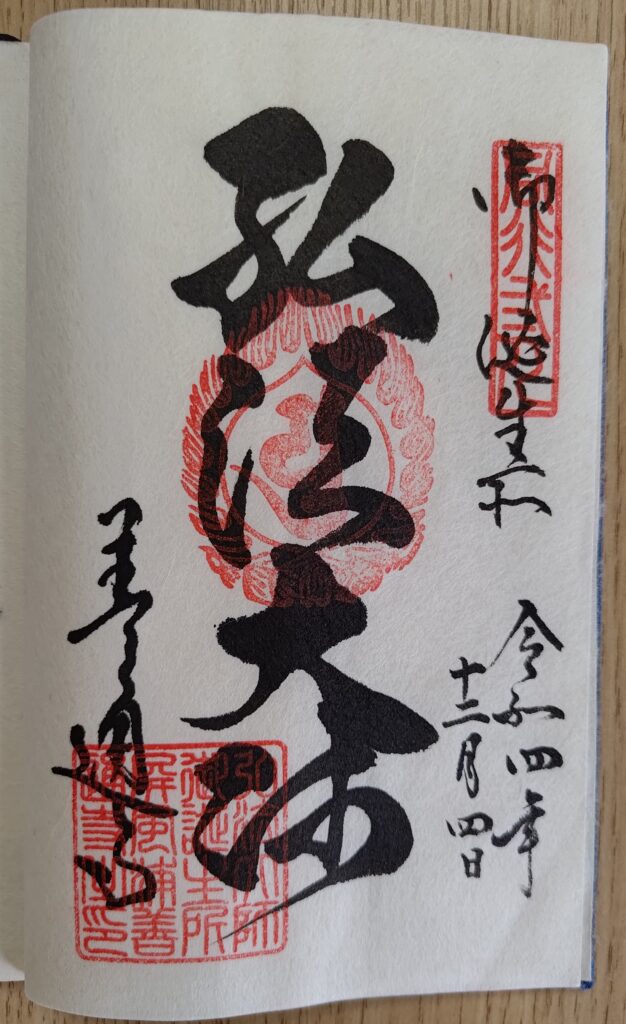 御誕生所
令和四年
十二月四日
弘法大師
善通寺
弘法大師
御誕生所
屏風浦善
通寺之印